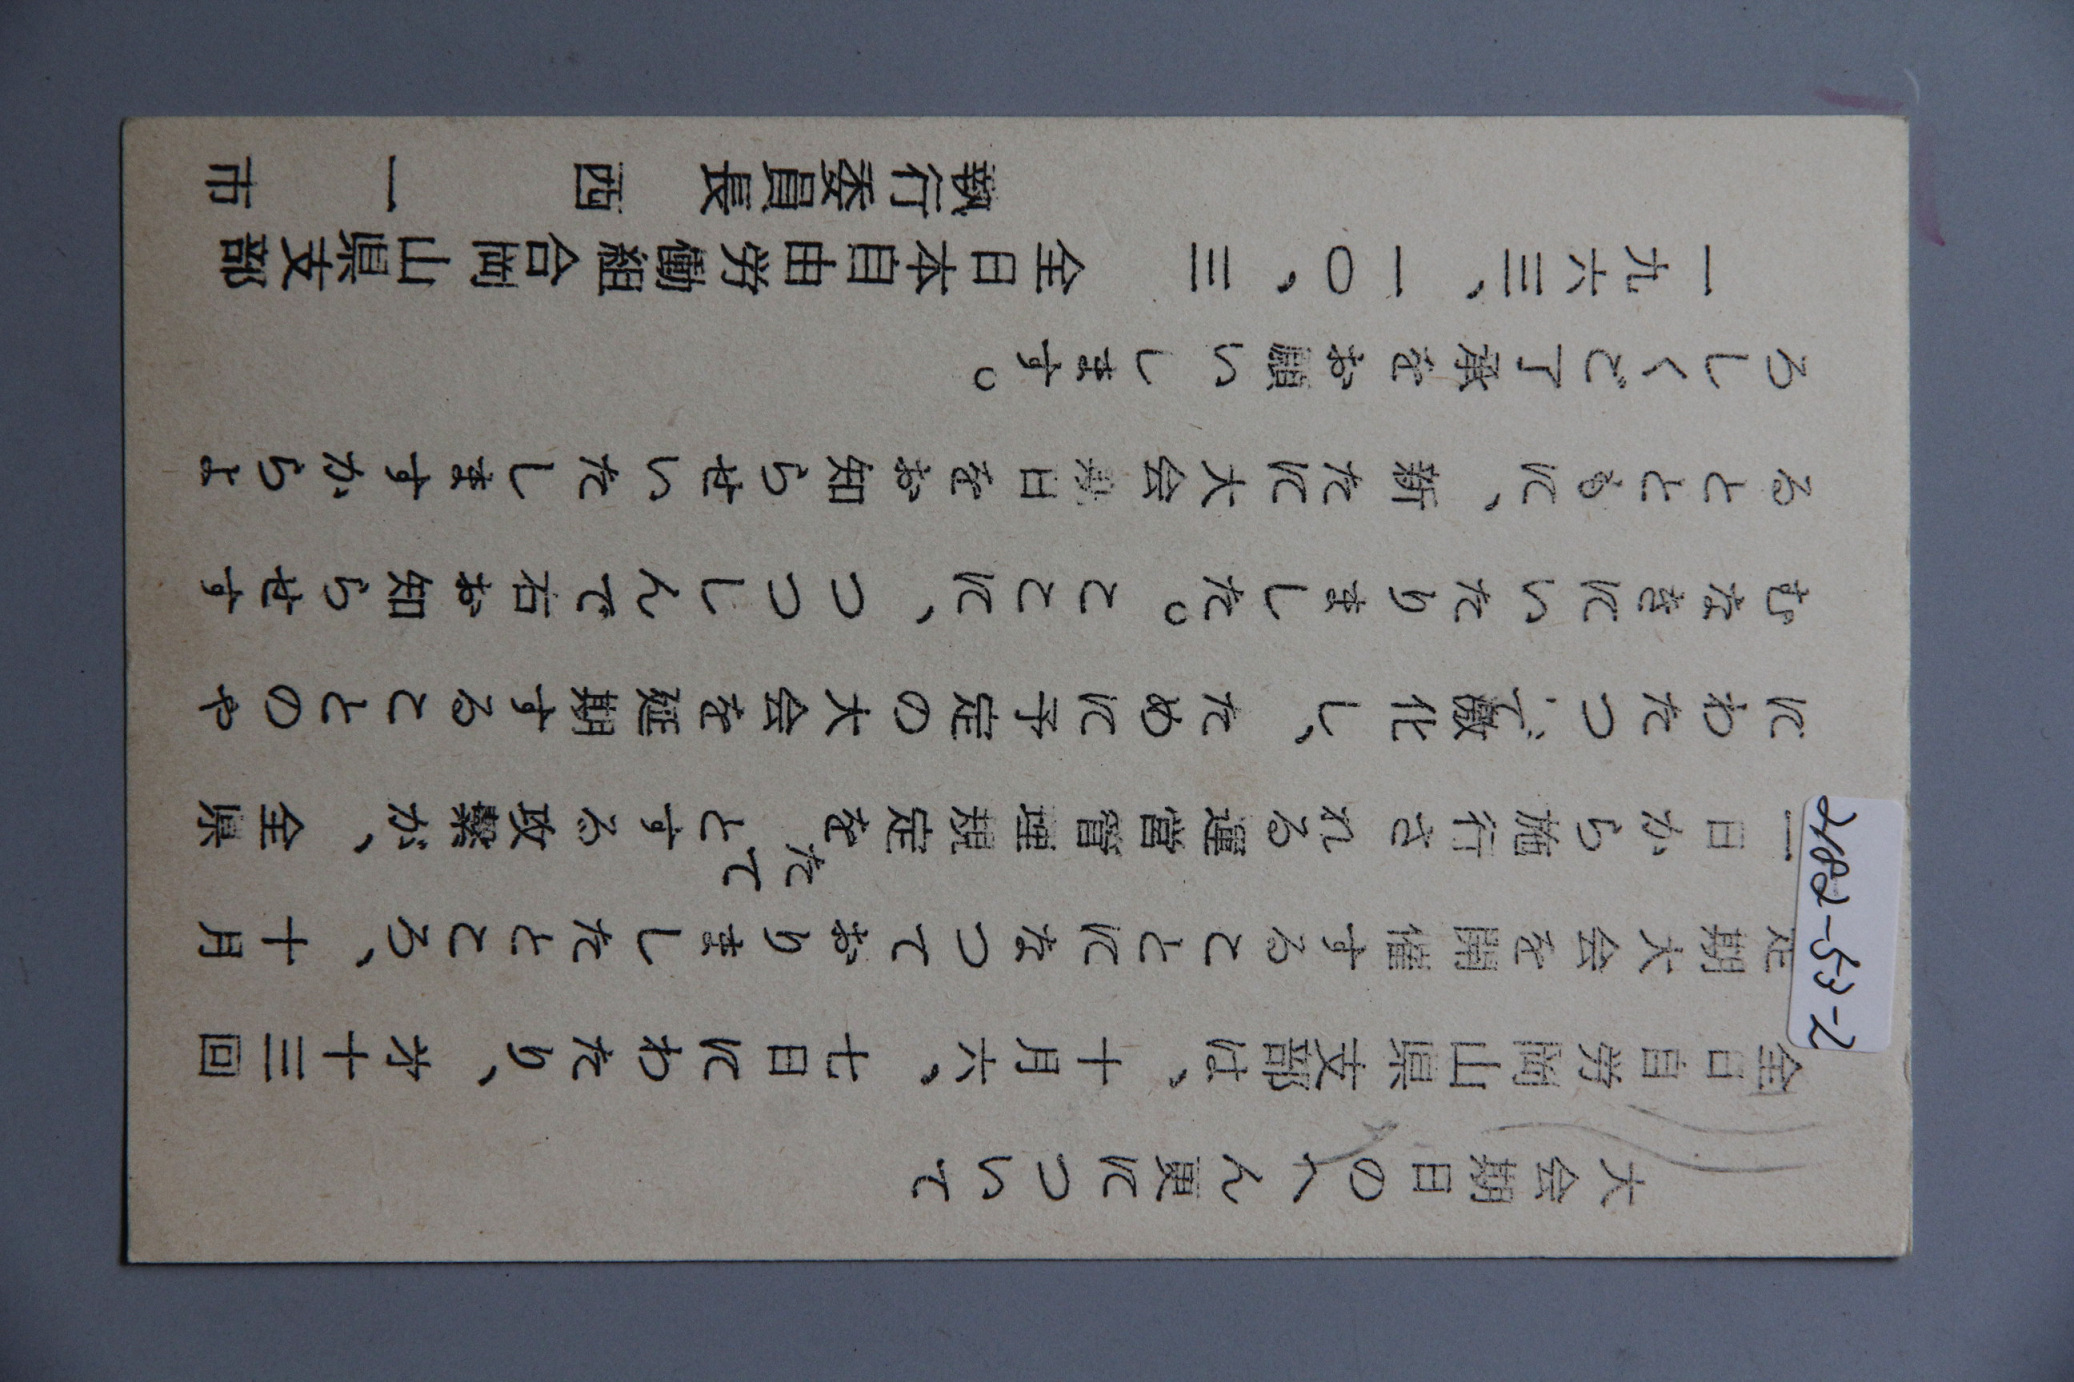 大会期日のへん更について
全日自労岡山県支部は、十月六、七日にわたり、才十三回
定期大会を開催することになつておりましたところ、十月
一日から施行される運営管理規定をたてとする攻撃が、全県
にわたつて激化し、ために予定の大会を延期することのや
むなきにいたりました。ここに、つつしんで右お知らせす
るとともに、新たに大会期日をお知らせいたしますからよ
ろしくご了承をお願いします。
一九六三、一〇、三 全日本自由労働組合岡山県支部
執行委員長 西 一 市
2182-53-2